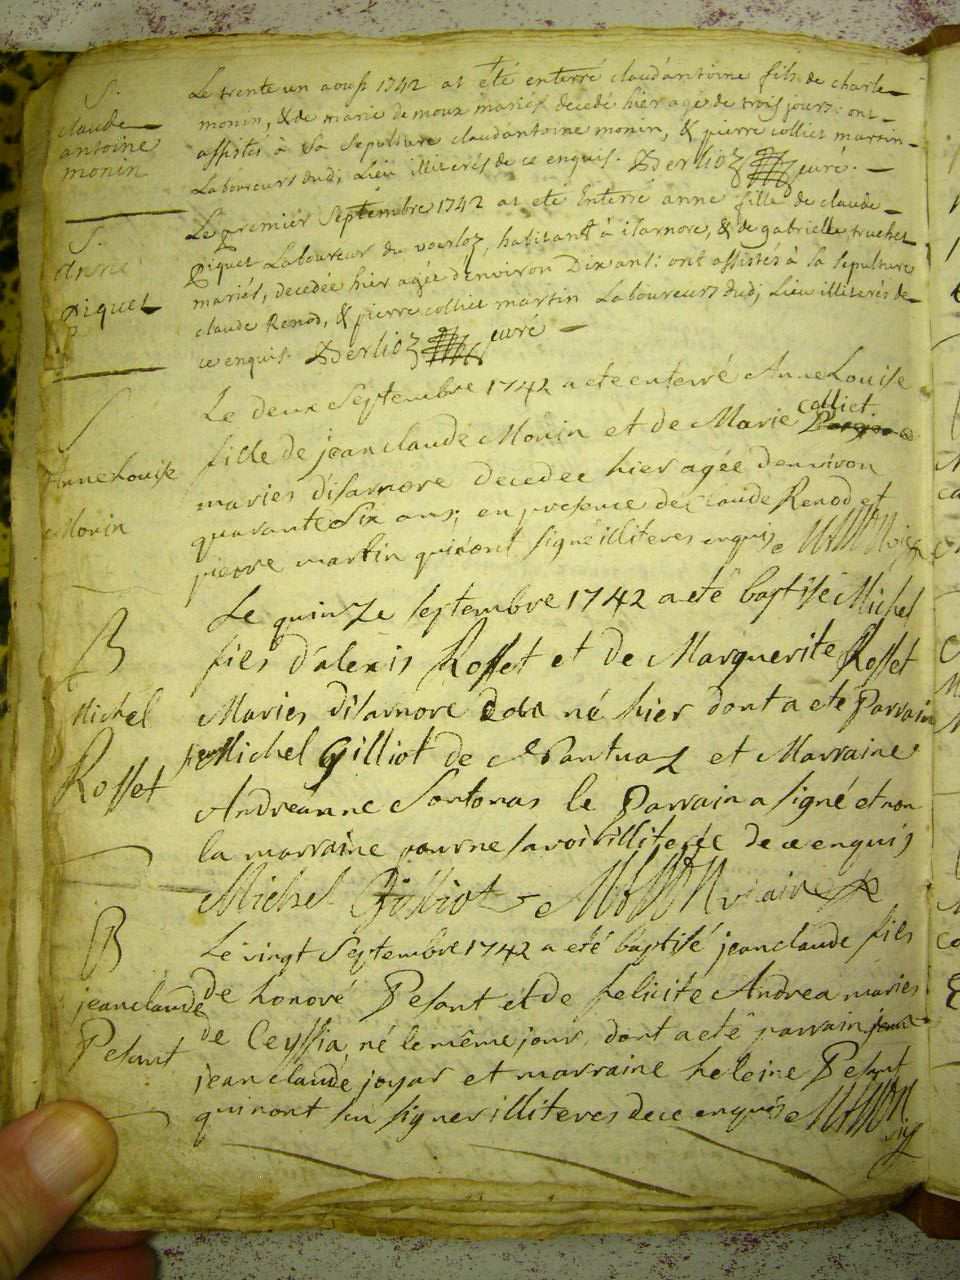 S.
claude
antoine
monin
Le trente un aoust 1742 at été enterré claudantoine fils de charle
monin, & de marie demoux mariez decedé hier agé de trois jours: ont
assistés à sa sepulture claudantoine monin, & pierre colliet martin
Laboureurs dudj Lieu illiterés de ce enquis. Berlioz curé.
S.
Anne
piquet
Le premier Septembre 1742 at eté Enterré anne fille de claude
Piquet Laboureur du voerloz, habitant à isarnore, & de gabrielle truchet
mariés, decedée hier agée d'environ Dix ans: ont assistés à la sepulture
claude Renod, & pierre colliet martin Laboureurs dudj Lieu illiterés de
ce enquis. Berlioz curé
S
Anne Louise
Monin
Le deux Septembre 1742 a ete enterré Anne Louise
fille de jean claude Monin et de Marie colliet
maries disarnore decedee hier agée denviron
quarante six ans; en presence de claude Renod et
pierre martin qui nont signé illiteres enquis
B
Michel
Rosset
Le quinze septembre 1742 a eté baptisé Michel
fils d'alexis Rosset et de Marguerite Rosset
Maries disarnore né hier dont a eté Parrain
Michel Gilliot de et Marraine
Andreanne Sontonas le Parrain a signé et non
la marraine pour ne savoir illiterée de ce enquis
Michel Gilliot
B
jean claude
Pesant
Le vingt Septembre 1742 a eté baptisé jean claude fils
de honoré Pesant et de felicité Andrea maries
de Ceyssia né le même jour, dont a eté parrain
jean claude joyar et marraine heleine Pesant
qui nont su signer illiteres de ce enquis